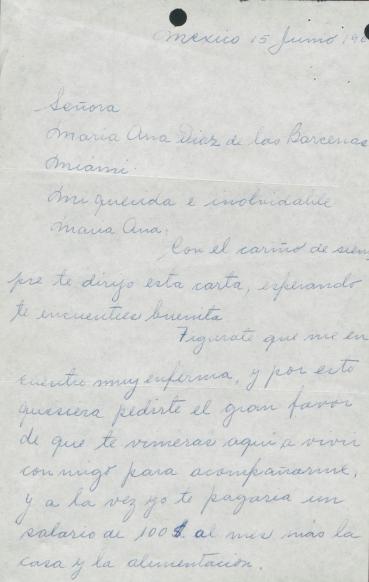 Mexico 15 Junio 196
Señora
Maria Ana Diaz de las Barcenas
Miami.
Mi querida e inolvidable
Maria Ana:
Con el cariño de siem
pre te dirijo esta carta, esperando
te encuentres buenita
Figurate que me en
cuentro muy enferma, y por esto
quisiera pedirte el gran favor
de que te vinieras aqui a vivir
conmigo para acompañarme,
y a la vez yo te pagaria un
salario de 100$ al mes más la
casa y la alimentación.